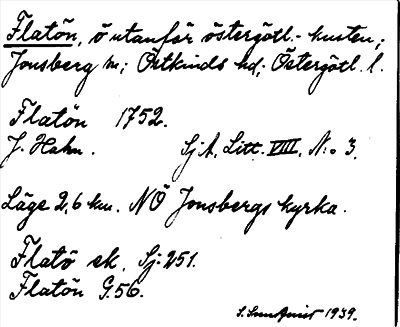 Flatön, ö utanför östergötl.-kusten;
Jonsberg sn; Östkinds hd; Östergötl. l.
Flatön 1752.
J. Hahn. Sj.A. Litt. VIII, N:o 3.
Läge 2,6 km. NÖ Jonsbergs kyrka.
Flatö ek. Sj: 251.
Flatön G.56.
S. Sundquist 1939.